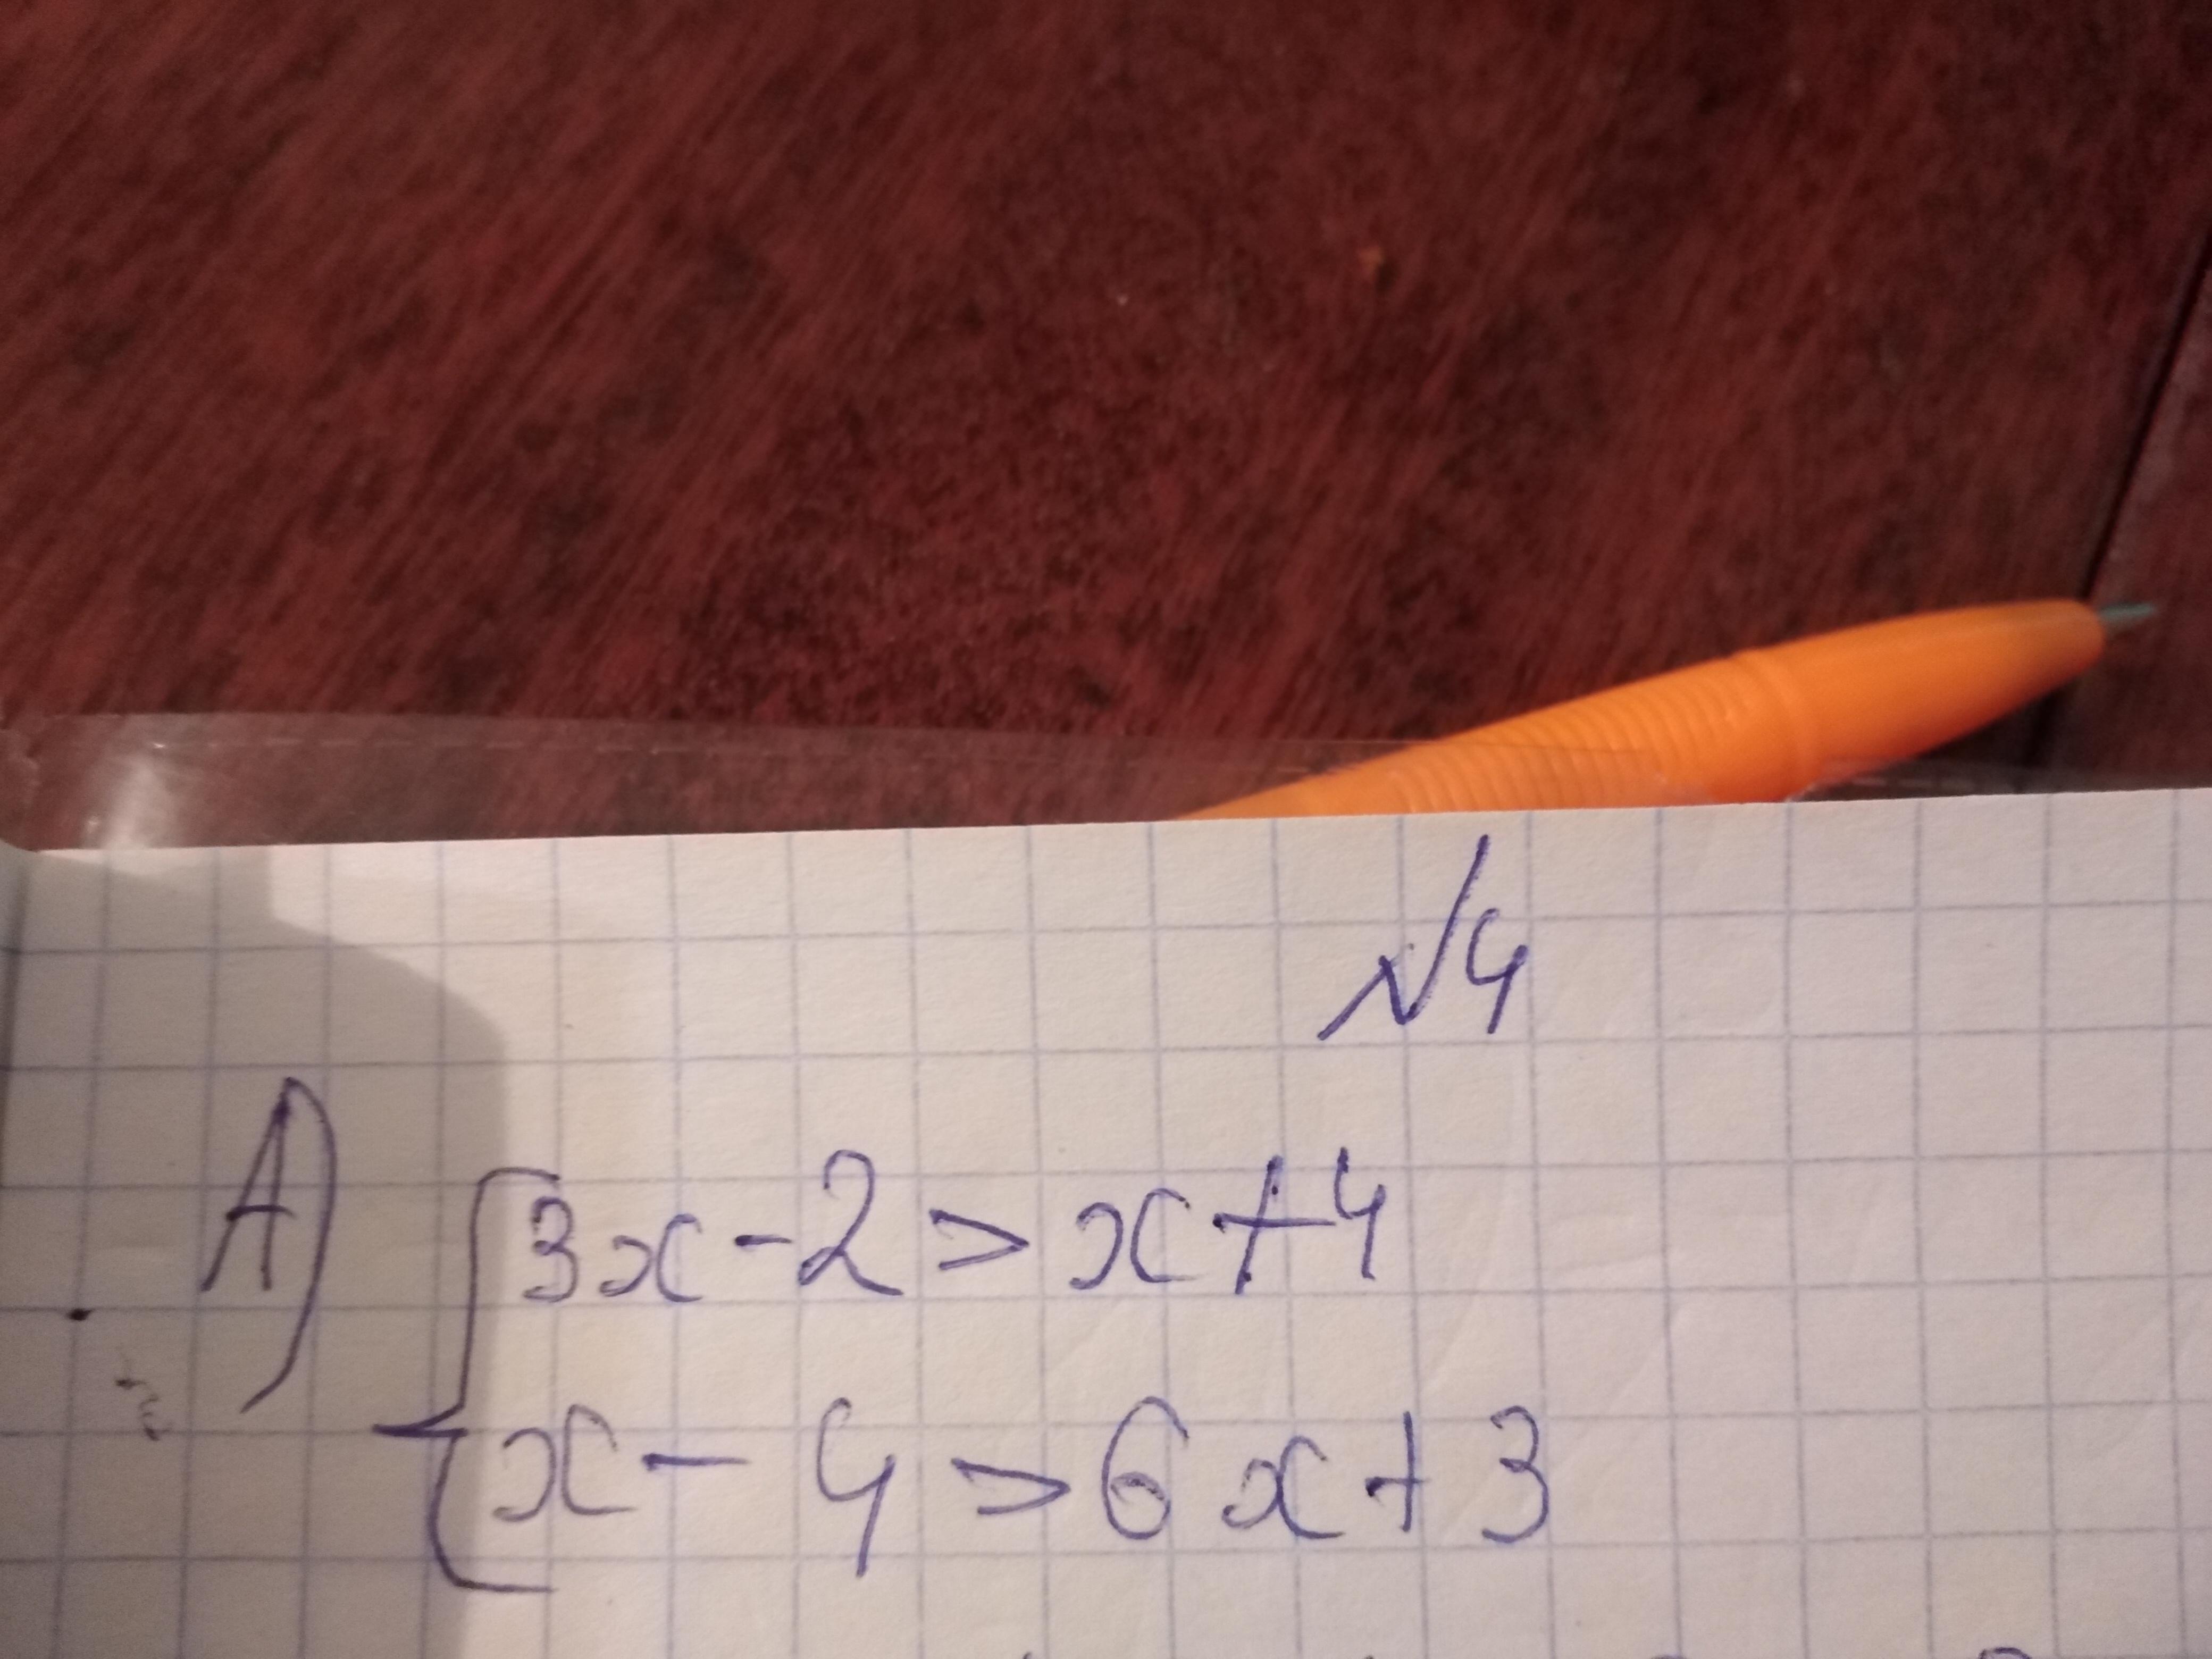 №4
А) {3x-2>x+4
x-4>6x+3